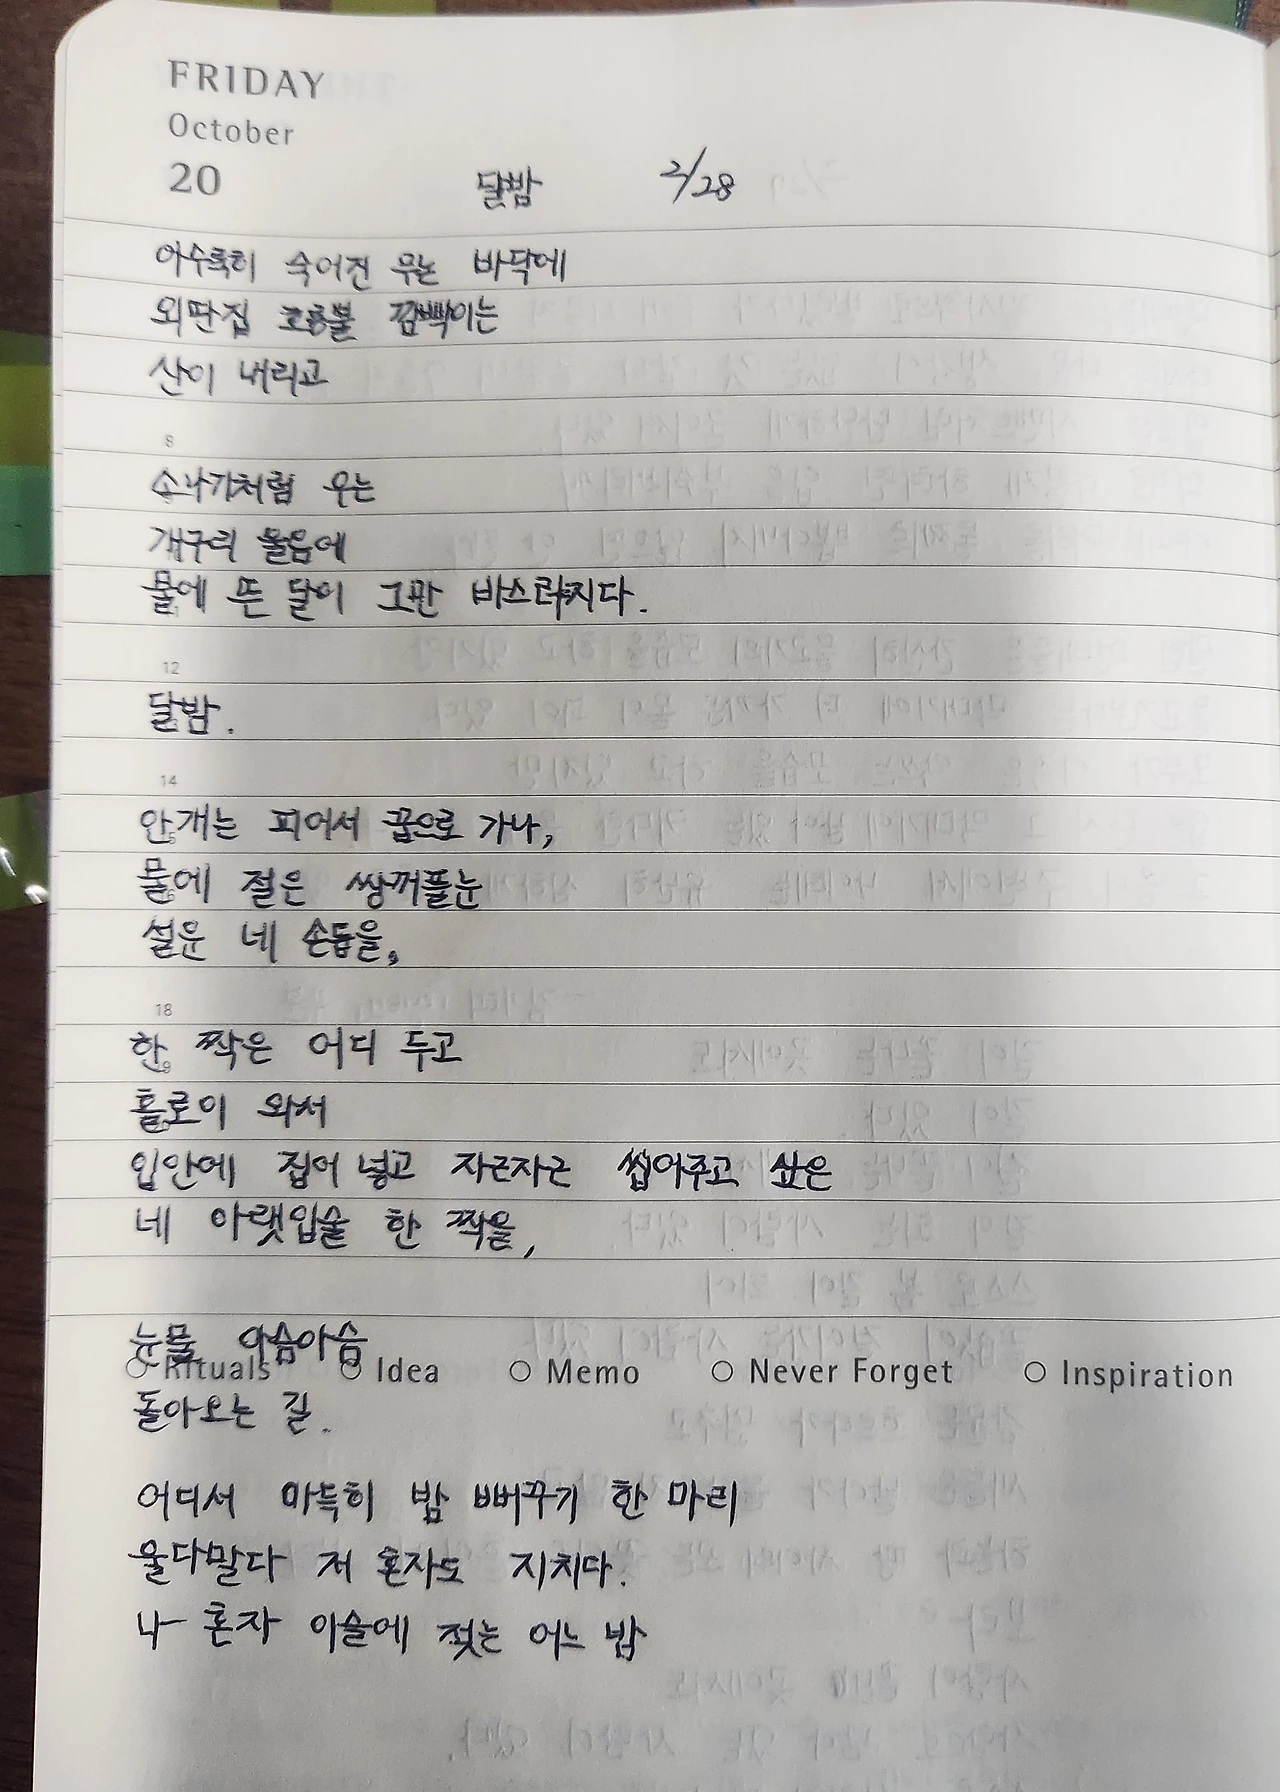 FRIDAY
October
20
달밤 2/28
아수룩히 숙어진 무논 바닥에
외딴집 호롱불 깜빡이는
산이 내리고
8
소나기처럼 우는
개구리 울음에
물에 뜬 달이 그만 바스라지다.
12
달밤.
14
안개는 피어서 꿈으로 가나,
물에 절은 쌍꺼풀눈
설운 네 손톱을,
18
한 짝은 어디 두고
홀로이 와서
입안에 집어 넣고 자근자근 씹어주고 싶은
네 아랫입술 한 짝을,
눈물 아슴아슴
Rituals Idea Memo Never Forget Inspiration
돌아오는 길.
어디서 아득히 밤 뻐꾸기 한 마리
울다말다 저 혼자도 지치다.
나 혼자 이슬에 젖는 어느 밤